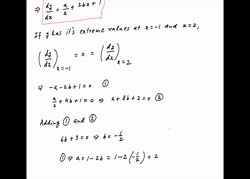 ⇒ dy/dx = a/x + 2bx + 1
If y has it's extreme values at x=-1 and x=2,
(dy/dx)x=-1 = 0 = (dy/dx)x=2
⇒ -a-2b+1=0 ①
a/2 + 4b+1=0 ⇒ a+8b+2=0 ②
Adding ① and ②
6b+3=0 ⇒ b=-1/2
①⇒ a=1-2b = 1-2(-1/2) = 2